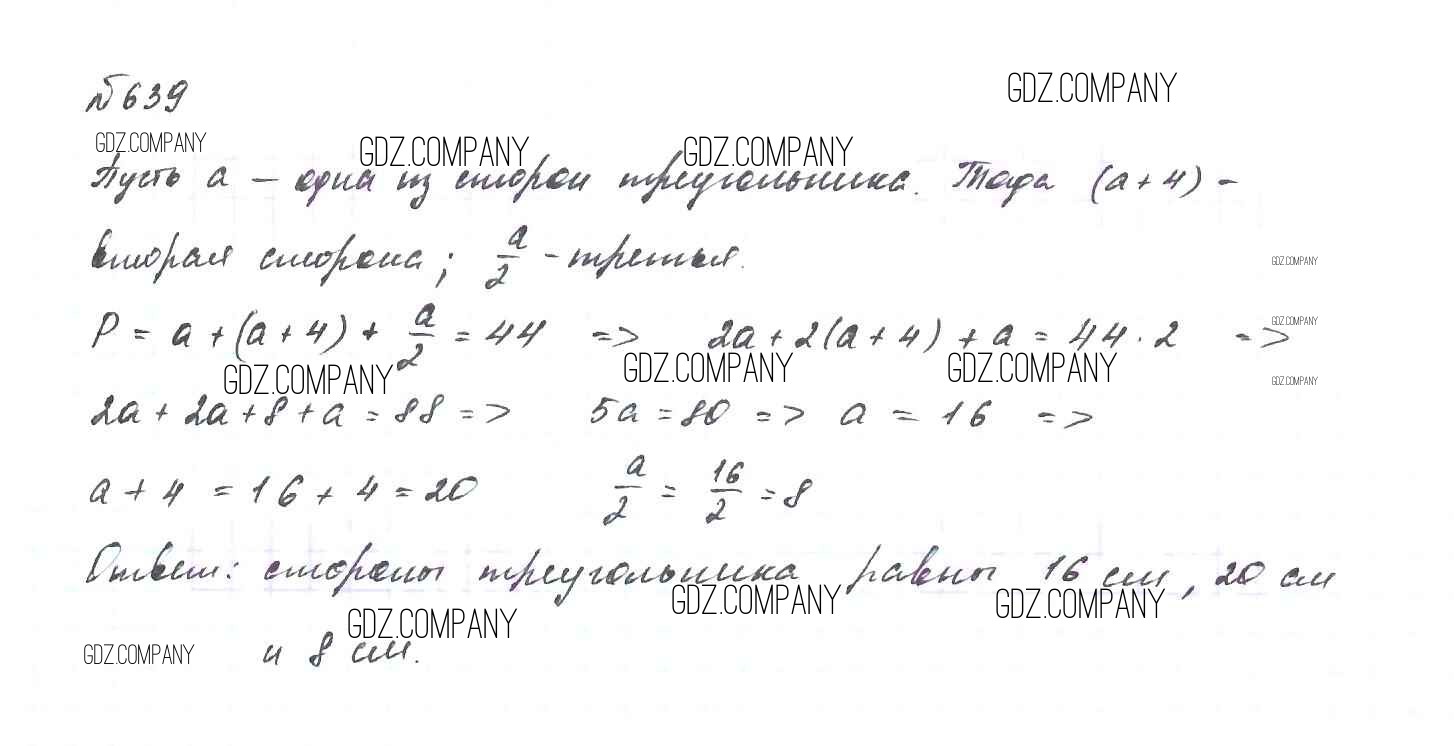 №639
GDZ.COMPANY
GDZ.COMPANY GDZ.COMPANY GDZ.COMPANY
Пусть a – одна из сторон треугольника. Тогда (a+4) –
вторая сторона; a/2 – третья.
GDZ.COMPANY
P = a + (a+4) + a/2 = 44 => 2a + 2(a+4) + a = 44 · 2 =>
GDZ.COMPANY
GDZ.COMPANY GDZ.COMPANY GDZ.COMPANY
GDZ.COMPANY
2a + 2a + 8 + a = 88 => 5a = 80 => a = 16 =>
a + 4 = 16 + 4 = 20 a/2 = 16/2 = 8
Ответ: стороны треугольника равны 16 см, 20 см
GDZ.COMPANY GDZ.COMPANY GDZ.COMPANY
GDZ.COMPANY и 8 см.